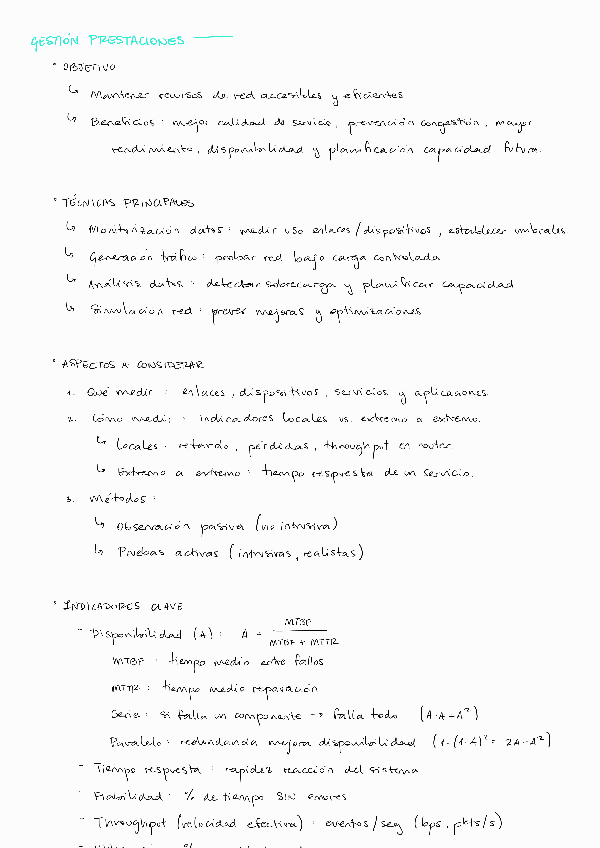 GESTIÓN PRESTACIONES
° OBJETIVO
↳ Mantener recursos de red accesibles y eficientes
↳ Beneficios: mejor calidad de servicio, prevención congestión, mayor
rendimiento, disponibilidad y planificación capacidad futura.
° TÉCNICAS PRINCIPALES
↳ Monitorización datos: medir uso enlaces/dispositivos, establecer umbrales
↳ Generación tráfico: probar red bajo carga controlada
↳ Análisis datos: detectar sobrecarga y planificar capacidad
↳ Simulación red: prever mejoras y optimizaciones
° ASPECTOS A CONSIDERAR
1. Qué medir: enlaces, dispositivos, servicios y aplicaciones
2. Cómo medir: indicadores locales vs. extremo a extremo.
↳ Locales: retardo, pérdidas, throughput en router
↳ Extremo a extremo: tiempo respuesta de un servicio.
3. Métodos:
↳ Observación pasiva (no intrusiva)
↳ Pruebas activas (intrusivas, realistas)
° INDICADORES CLAVE
- Disponibilidad (A): A = MTBF / MTBF + MTTR
MTBF: tiempo medio entre fallos
MTTR: tiempo medio reparación
Serie: si falla un componente -> falla todo (A·A=A²)
Paralelo: redundancia mejora disponibilidad (1-(1-A)² = 2A-A²)
- Tiempo respuesta: rapidez reacción del sistema
- Fiabilidad: % de tiempo SIN errores
- Throughput (velocidad efectiva): eventos/seg (bps, pkts/s)